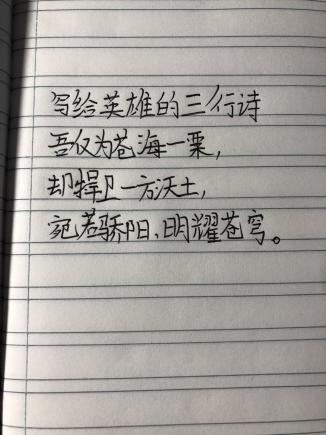 写给英雄的三行诗
吾仅为苍海一粟,
却捍卫一方沃土,
宛若骄阳,明耀苍穹。